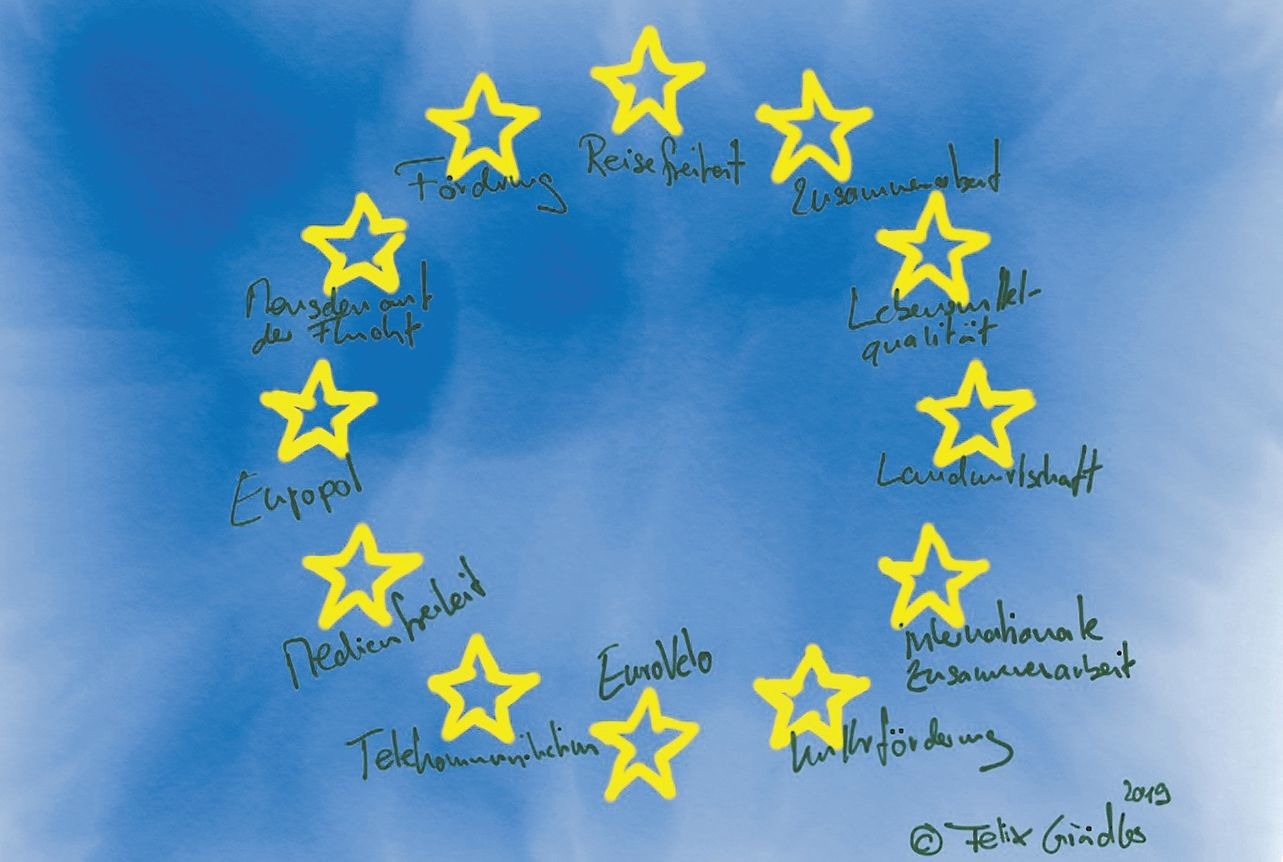 Reisefreiheit
Zusammenarbeit
Lebensmittel-
qualität
Landwirtschaft
internationale
Zusammenarbeit
Kulturförderung
EuroVelo
Telekommunikation
Medienfreiheit
Europol
Menschen auf
der Flucht
Fördrung
2019
© Felix